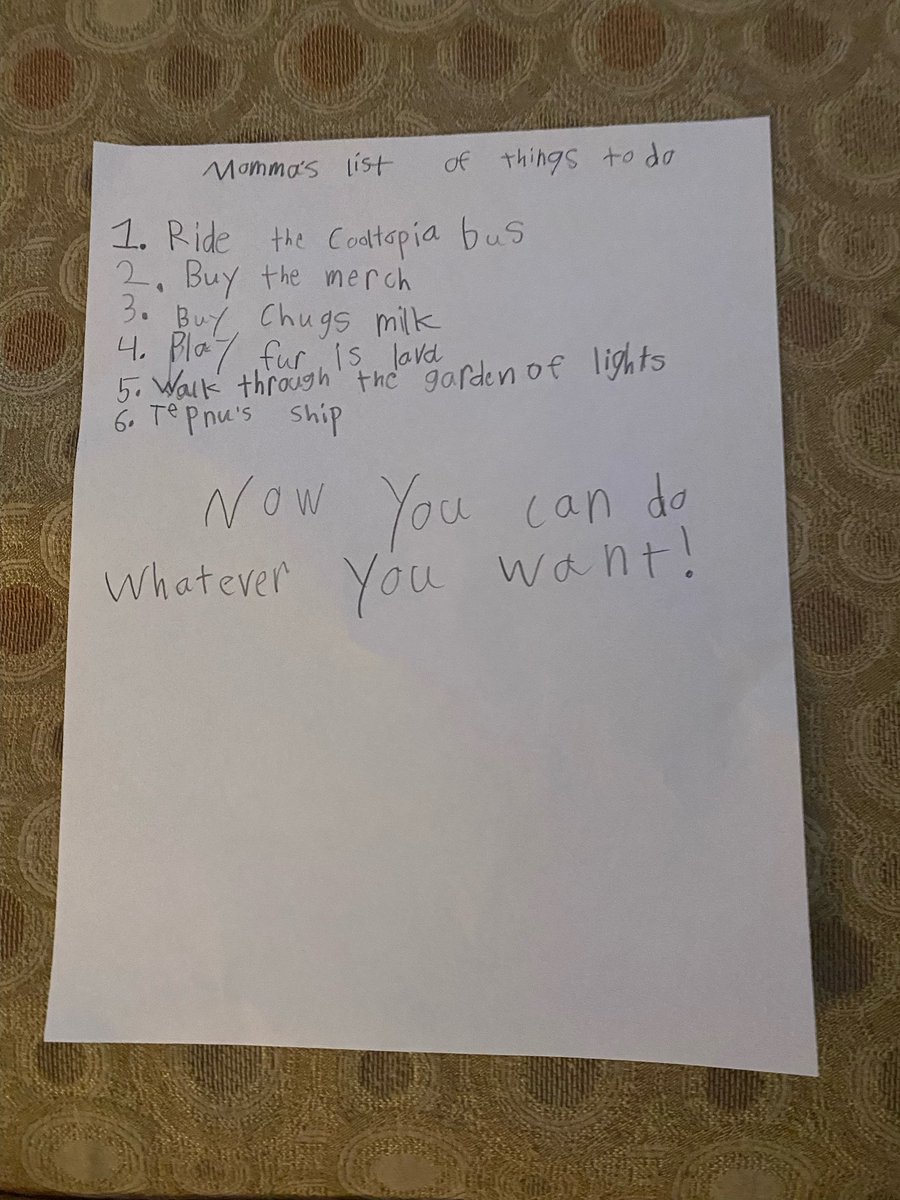 Momma's list of things to do
1. Ride the Cooltopia bus
2. Buy the merch
3. Buy Chugs milk
4. Play fur is lava
5. Walk through the garden of lights
6. Tepnu's ship
Now You can do
Whatever You want!